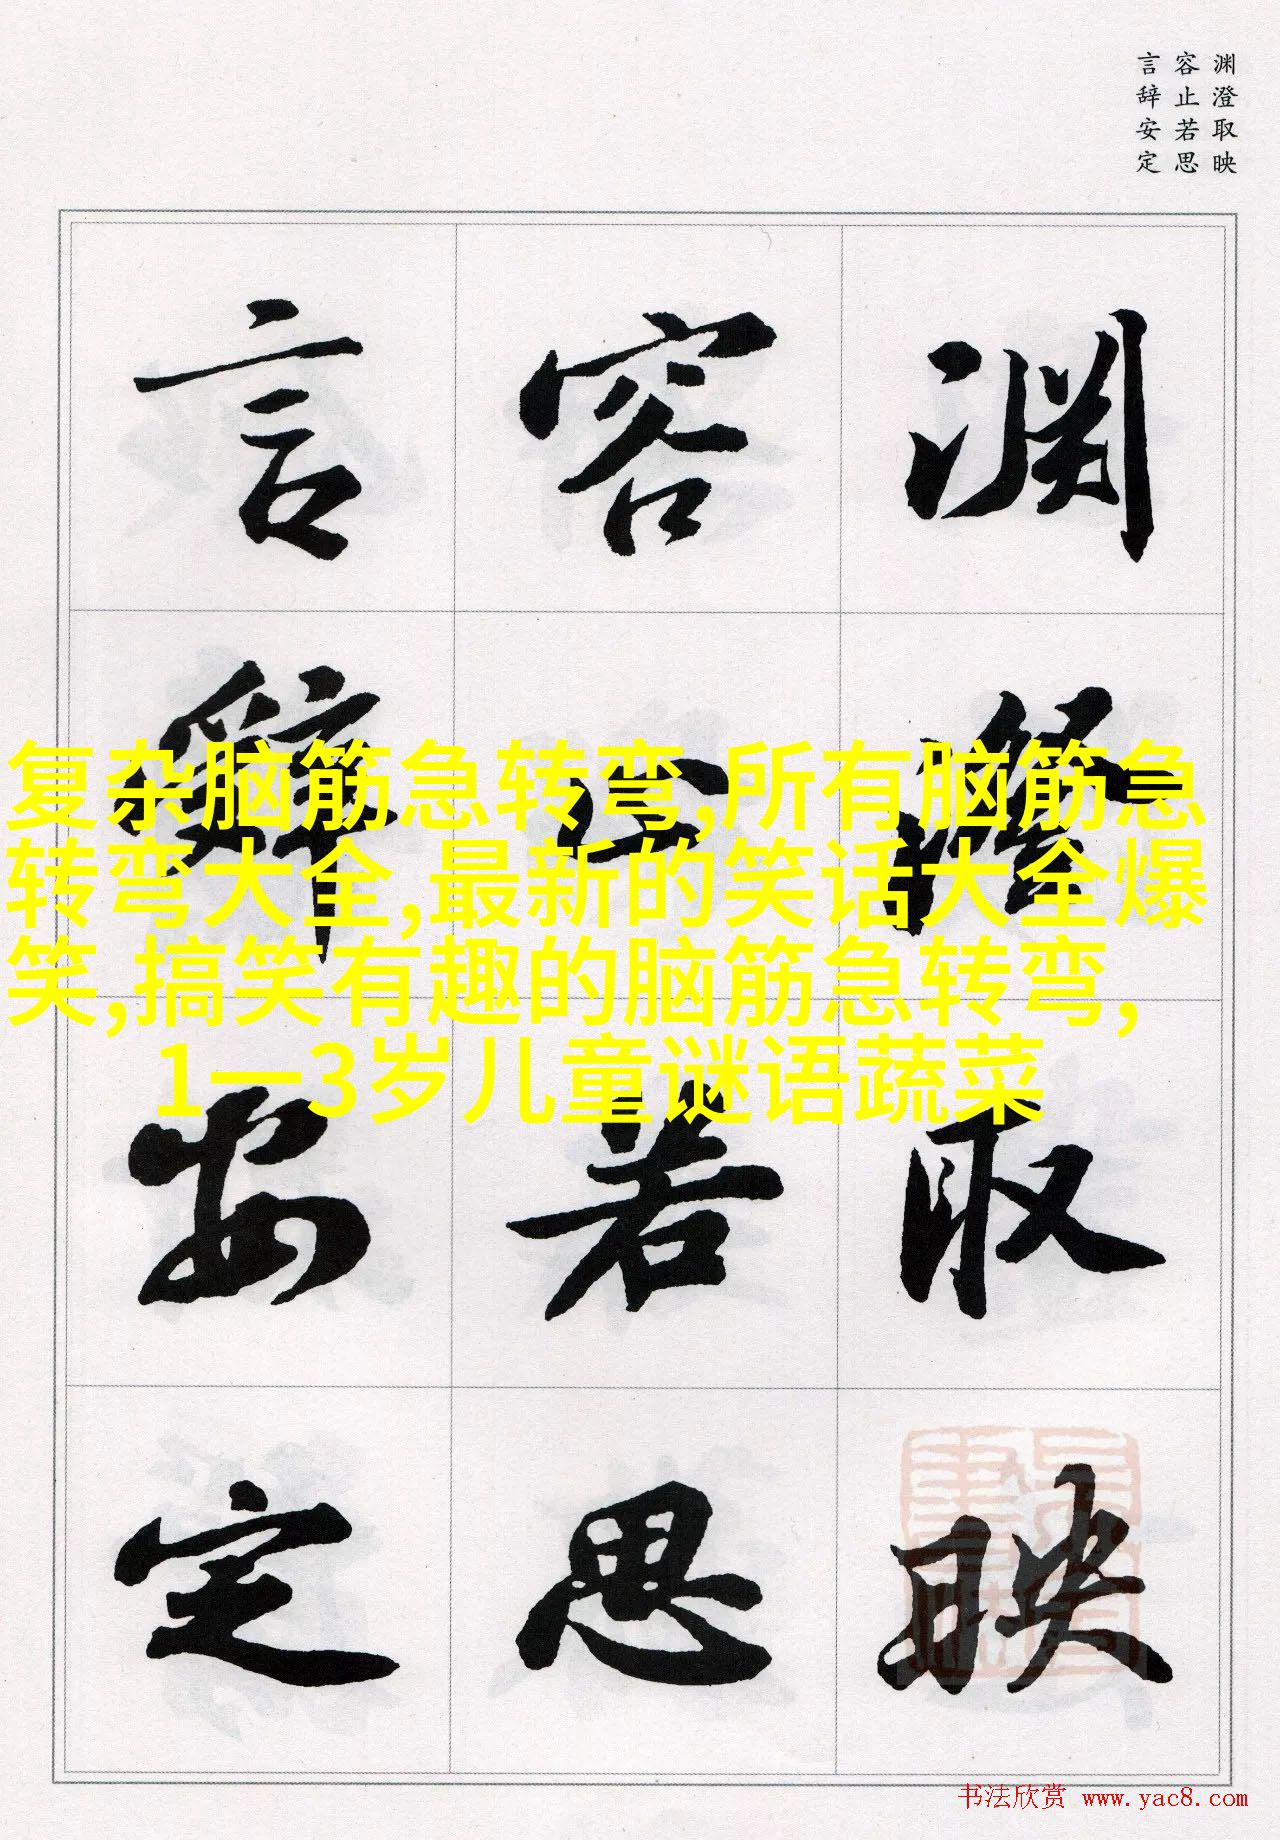 渊澄取映
容止若思
言辞安定
渊澄取映
容止若思
言辞安定
复杂脑筋急转弯,所有脑筋急
转弯大全,最新的笑话大全爆
笑,搞笑有趣的脑筋急转弯,
1一3岁儿童谜语蔬菜
书法欣赏 www.yac8.com